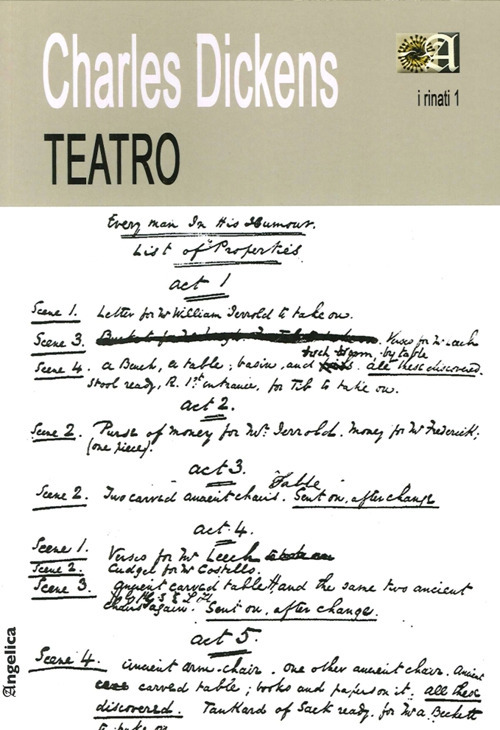 Charles Dickens
A
i rinati 1
TEATRO
Every man In His Humour.
List of Properties
Act 1
Scene 1. Letter for Mr William Jerrold to take on.
Scene 3. Verses for Mr Leech
by table
Scene 4. A Bench, a table; basin, and all these discovered.
stool ready, R. 1st entrance, for Tib to take on.
Act 2.
Scene 2. Purse of money for Mr. Jerrold. Money for Mr Frederick;
(one piece).
Act 3.
Table
Scene 2. Two carved ancient chairs. Sent on, after change
Act 4.
Scene 1. Verses for Mr Leech
Scene 2. Cudgel for Mr Costello.
Scene 3. Ancient carved table and the same two ancient
chairs again. Sent on, after change.
Act 5.
Scene 4. Ancient arm-chair. One other ancient chair. Ancient
carved table; books and papers on it; all these
discovered. Tankard of Sack ready, for Mr a Beckett
to take on
Angelica